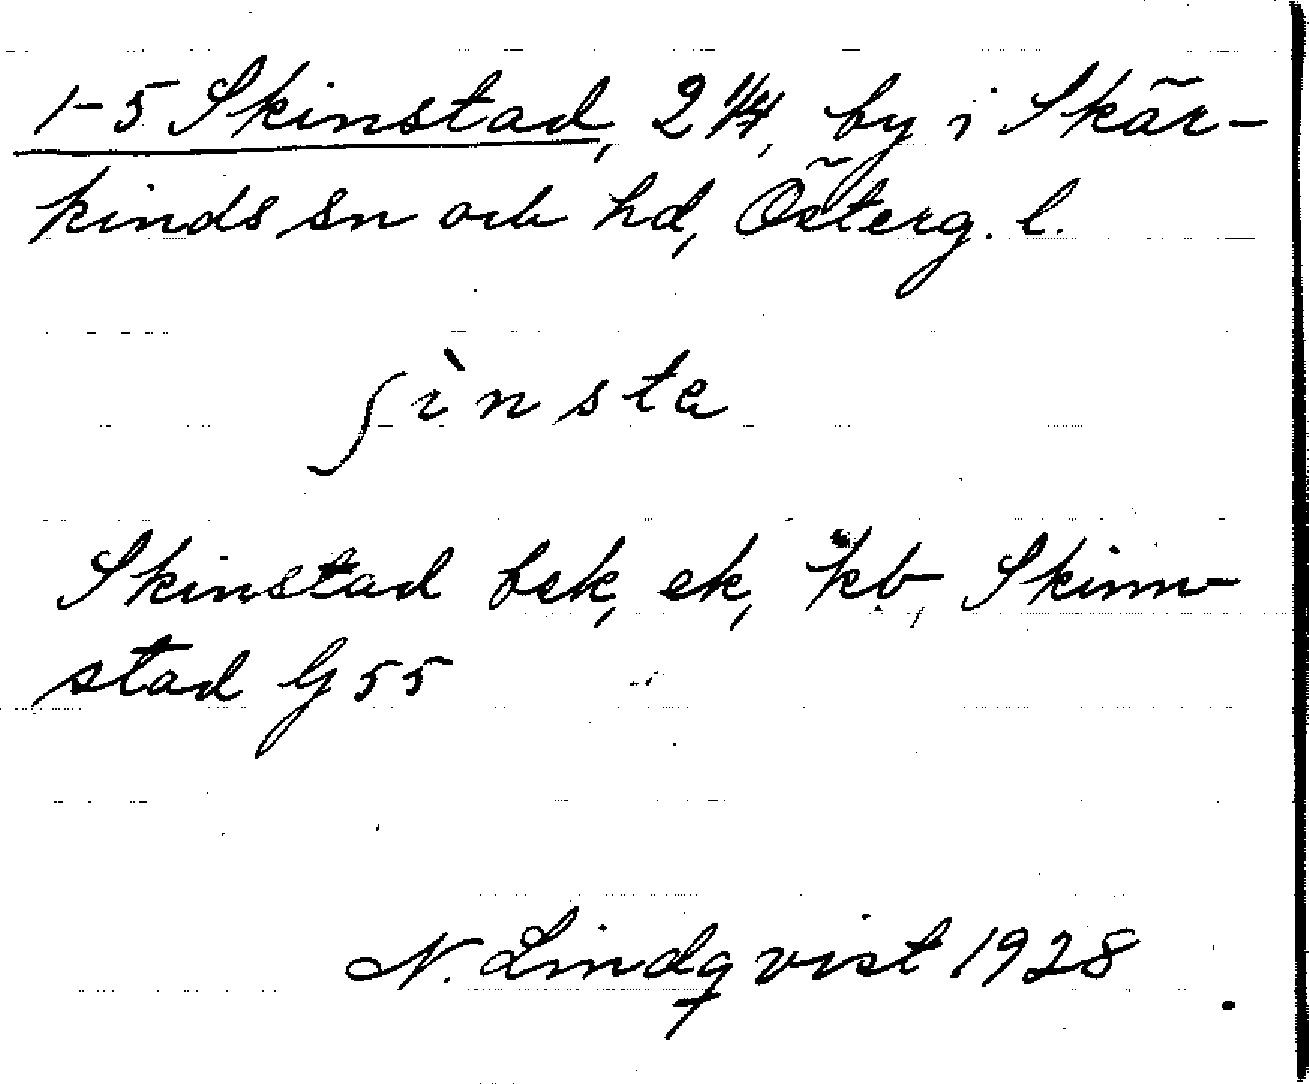 1-5 Skinstad, 2 1/4, by i Skär-
kinds sn och hd, Österg. l.
ʃìnsta
Skinstad bsk, ek, kb, Skinn-
stad G 55
N. Lindqvist 1928